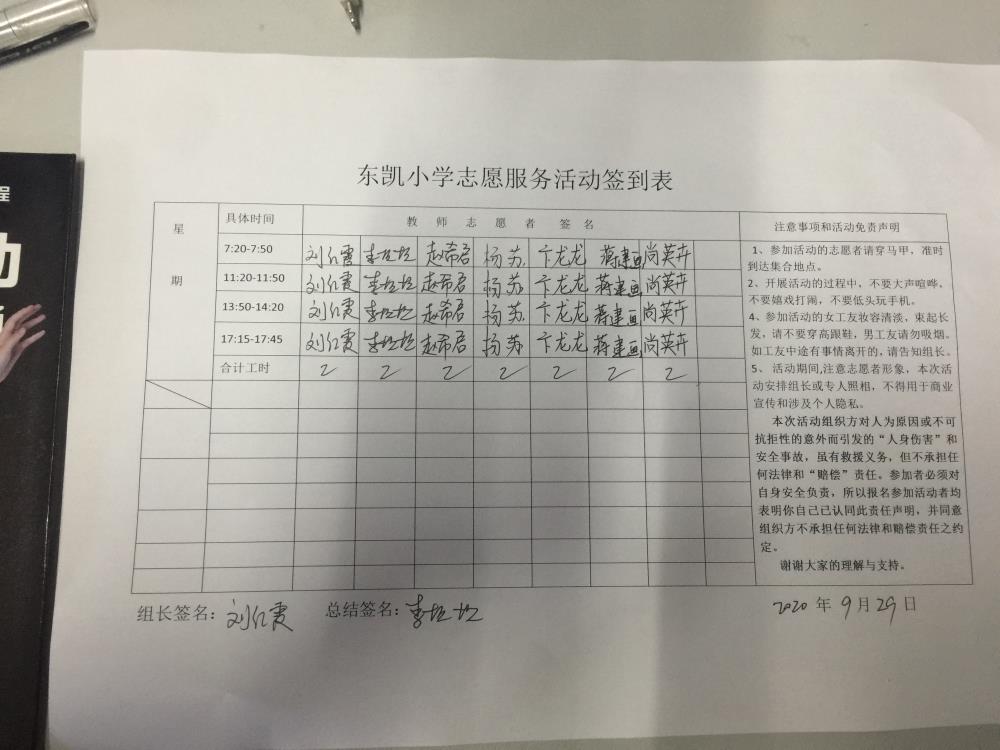 程
动
东凯小学志愿服务活动签到表
星期
具体时间 教师志愿者签名 注意事项和活动免责声明
7:20-7:50 刘红霞 李垃垃 赵希君 杨芳 卞龙龙 蒋建画 尚英卉
11:20-11:50 刘红霞 李垃垃 赵希君 杨芳 卞龙龙 蒋建画 尚英卉
13:50-14:20 刘红霞 李垃垃 赵希君 杨芳 卞龙龙 蒋建画 尚英卉
17:15-17:45 刘红霞 李垃垃 赵希君 杨芳 卞龙龙 蒋建画 尚英卉
合计工时 2 2 2 2 2 2 2
1、参加活动的志愿者请穿马甲，准时
到达集合地点。
2、开展活动的过程中，不要大声喧哗，
不要嬉戏打闹，不要低头玩手机。
4、参加活动的女工友妆容清淡，束起长
发，请不要穿高跟鞋，男工友请勿吸烟。
如工友中途有事情离开的，请告知组长。
5、 活动期间,注意志愿者形象，本次活
动安排组长或专人照相，不得用于商业
宣传和涉及个人隐私。
本次活动组织方对人为原因或不可
抗拒性的意外而引发的“人身伤害”和
安全事故，虽有救援义务，但不承担任
何法律和“赔偿”责任。参加者必须对
自身安全负责，所以报名参加活动者均
表明你自己已认同此责任声明，并同意
组织方不承担任何法律和赔偿责任之约
定。
谢谢大家的理解与支持。
组长签名：刘红霞 总结签名：李垃垃 2020 年 9 月 29 日